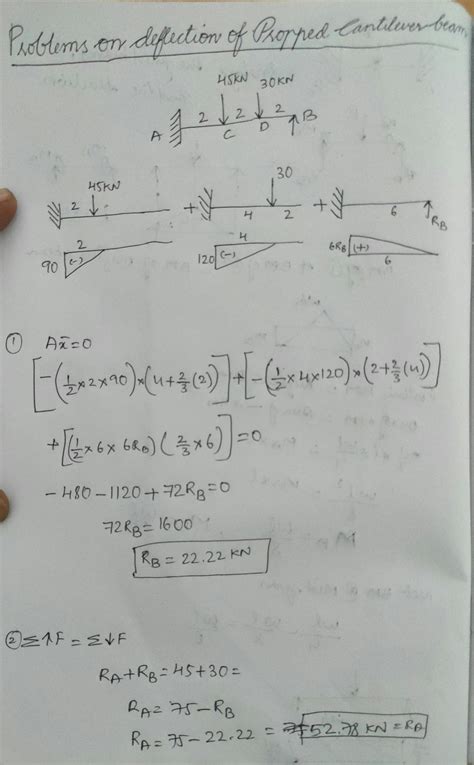 Problems on deflection of Propped Cantilever beam
45KN 30KN
A 2 2 2 B
C D
2 45KN + 30 4 2 + 6 RB
90 2 (-) 120 4 (-) 6RB (+) 6
① Ax̄=0
[-(1/2×2×90)×(4+2/3(2))]+[-(1/2×4×120)×(2+2/3(4))]
+[(1/2×6×6RB)(2/3×6)]=0
-480-1120+72RB=0
72RB=1600
RB = 22.22 KN
② Σ↑F = Σ↓F
RA+RB=45+30=
RA=75-RB
RA=75-22.22 = 52.78 KN=RA